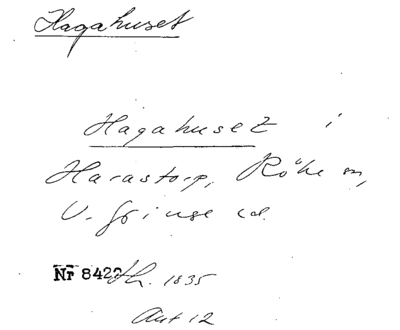 Hagahuset
Hagahuset i
Harastorp, Röke sn,
V. Göinge hd.
Nr 8422 h. 1835
Ant 12